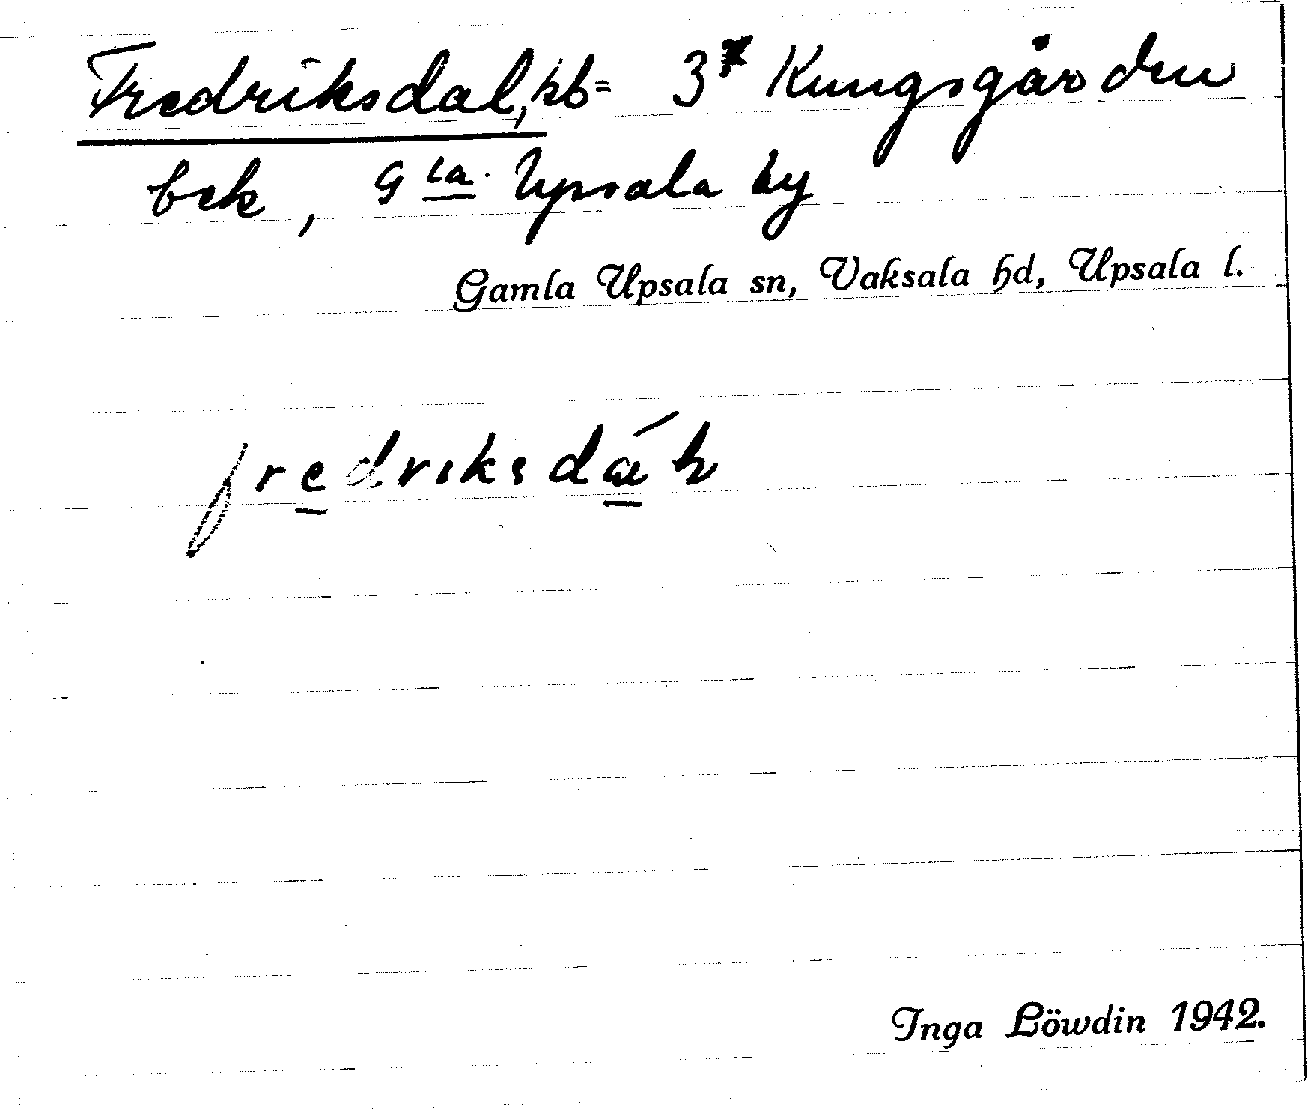 Fredriksdal, hb = 3* Kungsgården
bek, Gla. Upsala by
Gamla Upsala sn, Vaksala hd, Upsala l.
fredriksdá
Inga Löwdin 1942.